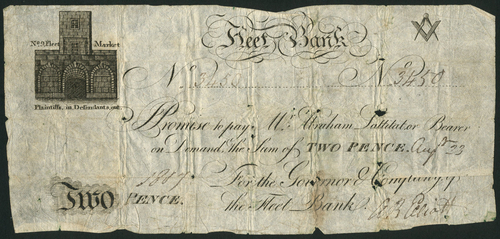 Fleet Bank
No. 9, Fleet Market
Plaintiffs, in, Defendants, out
No. 3450 No. 3450
I Promise to pay Mr. Abraham Lattitat or Bearer
on Demand the Sum of TWO PENCE. Augt 23
1807 For the Governor & Company of
Two PENCE. the Fleet Bank